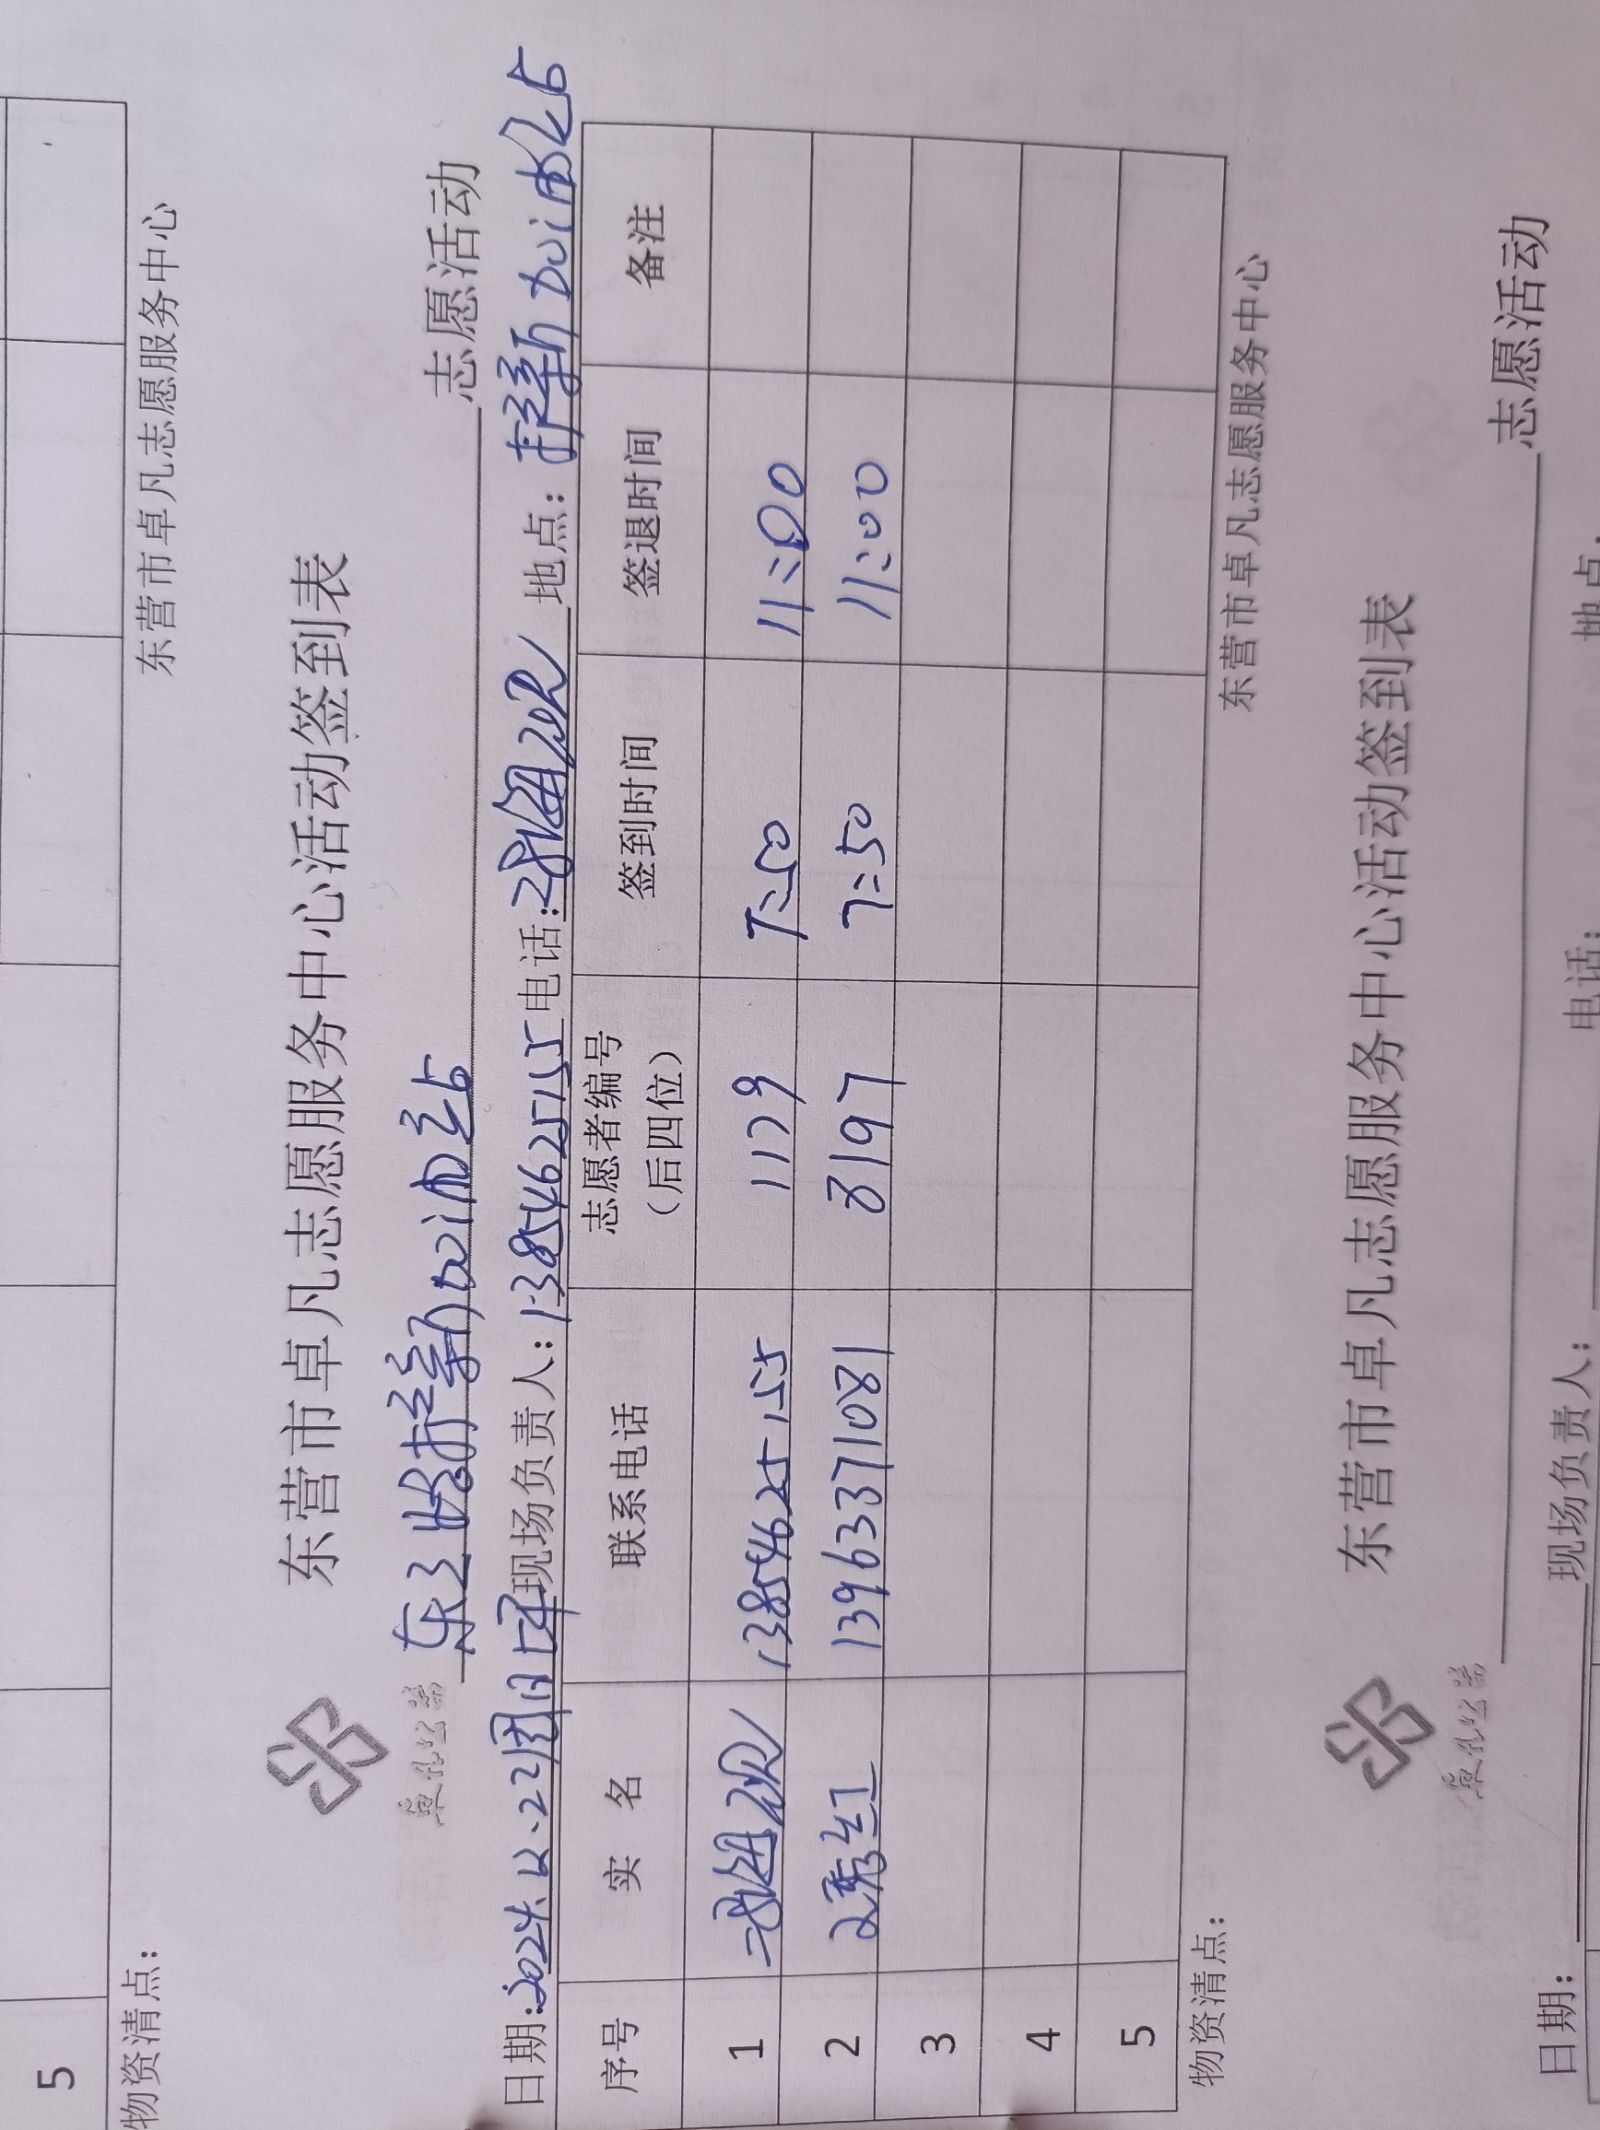 5
物资清点：
东营市卓凡志愿服务中心
东营市卓凡志愿服务中心活动签到表
志愿活动
日期：2024.12.22 现场负责人：13854625155 电话： 地点：
序号 实 名 联系电话 志愿者编号（后四位） 签到时间 签退时间 备注
1 13854625155 1179 7:50 11:00
2 秀红 13963371081 8197 7:50 11:00
3
4
5
物资清点：
东营市卓凡志愿服务中心
东营市卓凡志愿服务中心活动签到表
志愿活动
日期： 现场负责人： 电话： 地点：